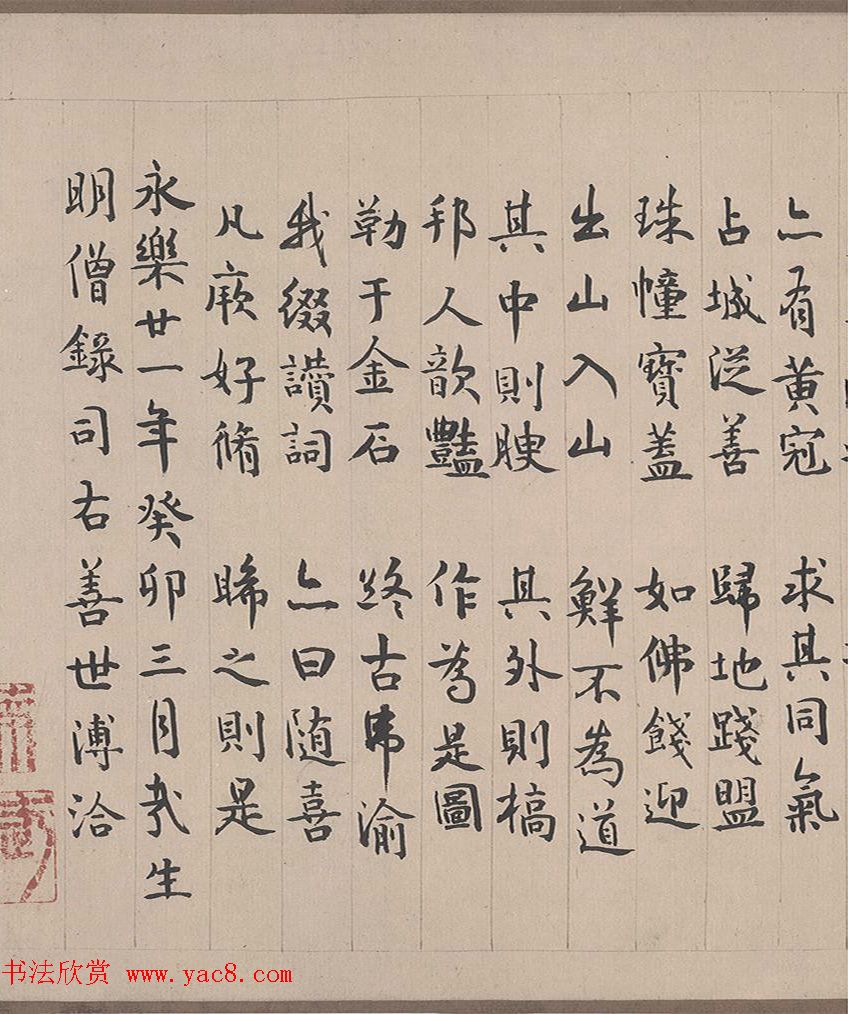 亦有黃冠 求其同氣
占城從善 歸地踐盟
珠幢寶蓋 如佛餞迎
出山入山 鮮不為道
其中則腴 其外則槁
邦人歆豔 作為是圖
勒于金石 終古弗渝
我綴讚詞 亦曰随喜
凡厥好脩 睎之則是
永樂廿一年癸卯三月哉生
明僧錄司右善世溥洽
书法欣赏 www.yac8.com